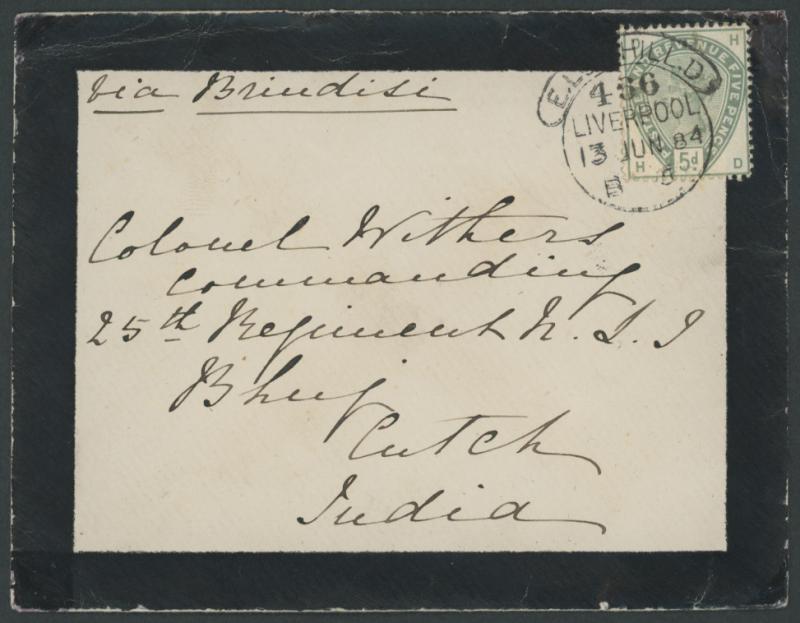 via Brindisi
HILL.D
466
LIVERPOOL
13 JUN 84
B 5
REVENUE FIVE PENCE
D H
H D
5d
Colonel Withers
Commanding
25th Regiment N. L. I
Bhuj
Cutch
India